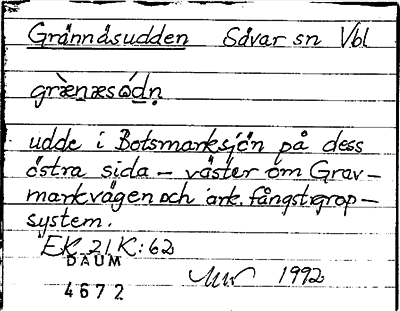 Grännäsudden Sävar sn Vbl
grὲn̠æsώd̠n̥
udde i Botsmarksjön på dess
östra sida – väster om Grav–
markvägen och ark. fångstgrop–
system.
EK 21K:62
DAUM
4672
1992